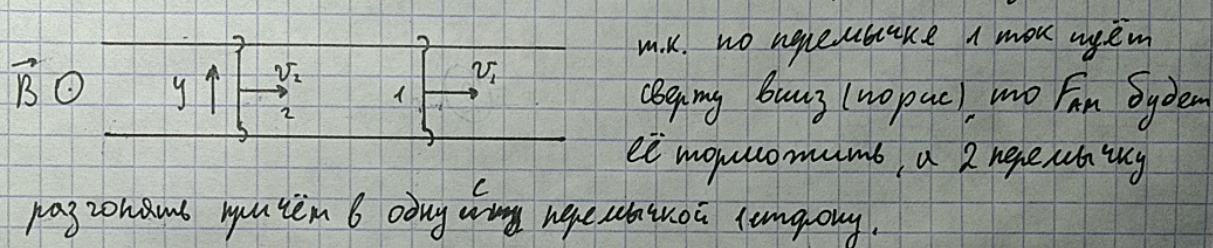 т.к. по перемычке 1 ток идёт
B⃗ ⊙ y ↑ v₂ 2 1 v₁ сверху вниз (по рис), то Fам будет
её тормозить, а 2 перемычку
разгонять причём в одну с перемычкой 1 сторону.